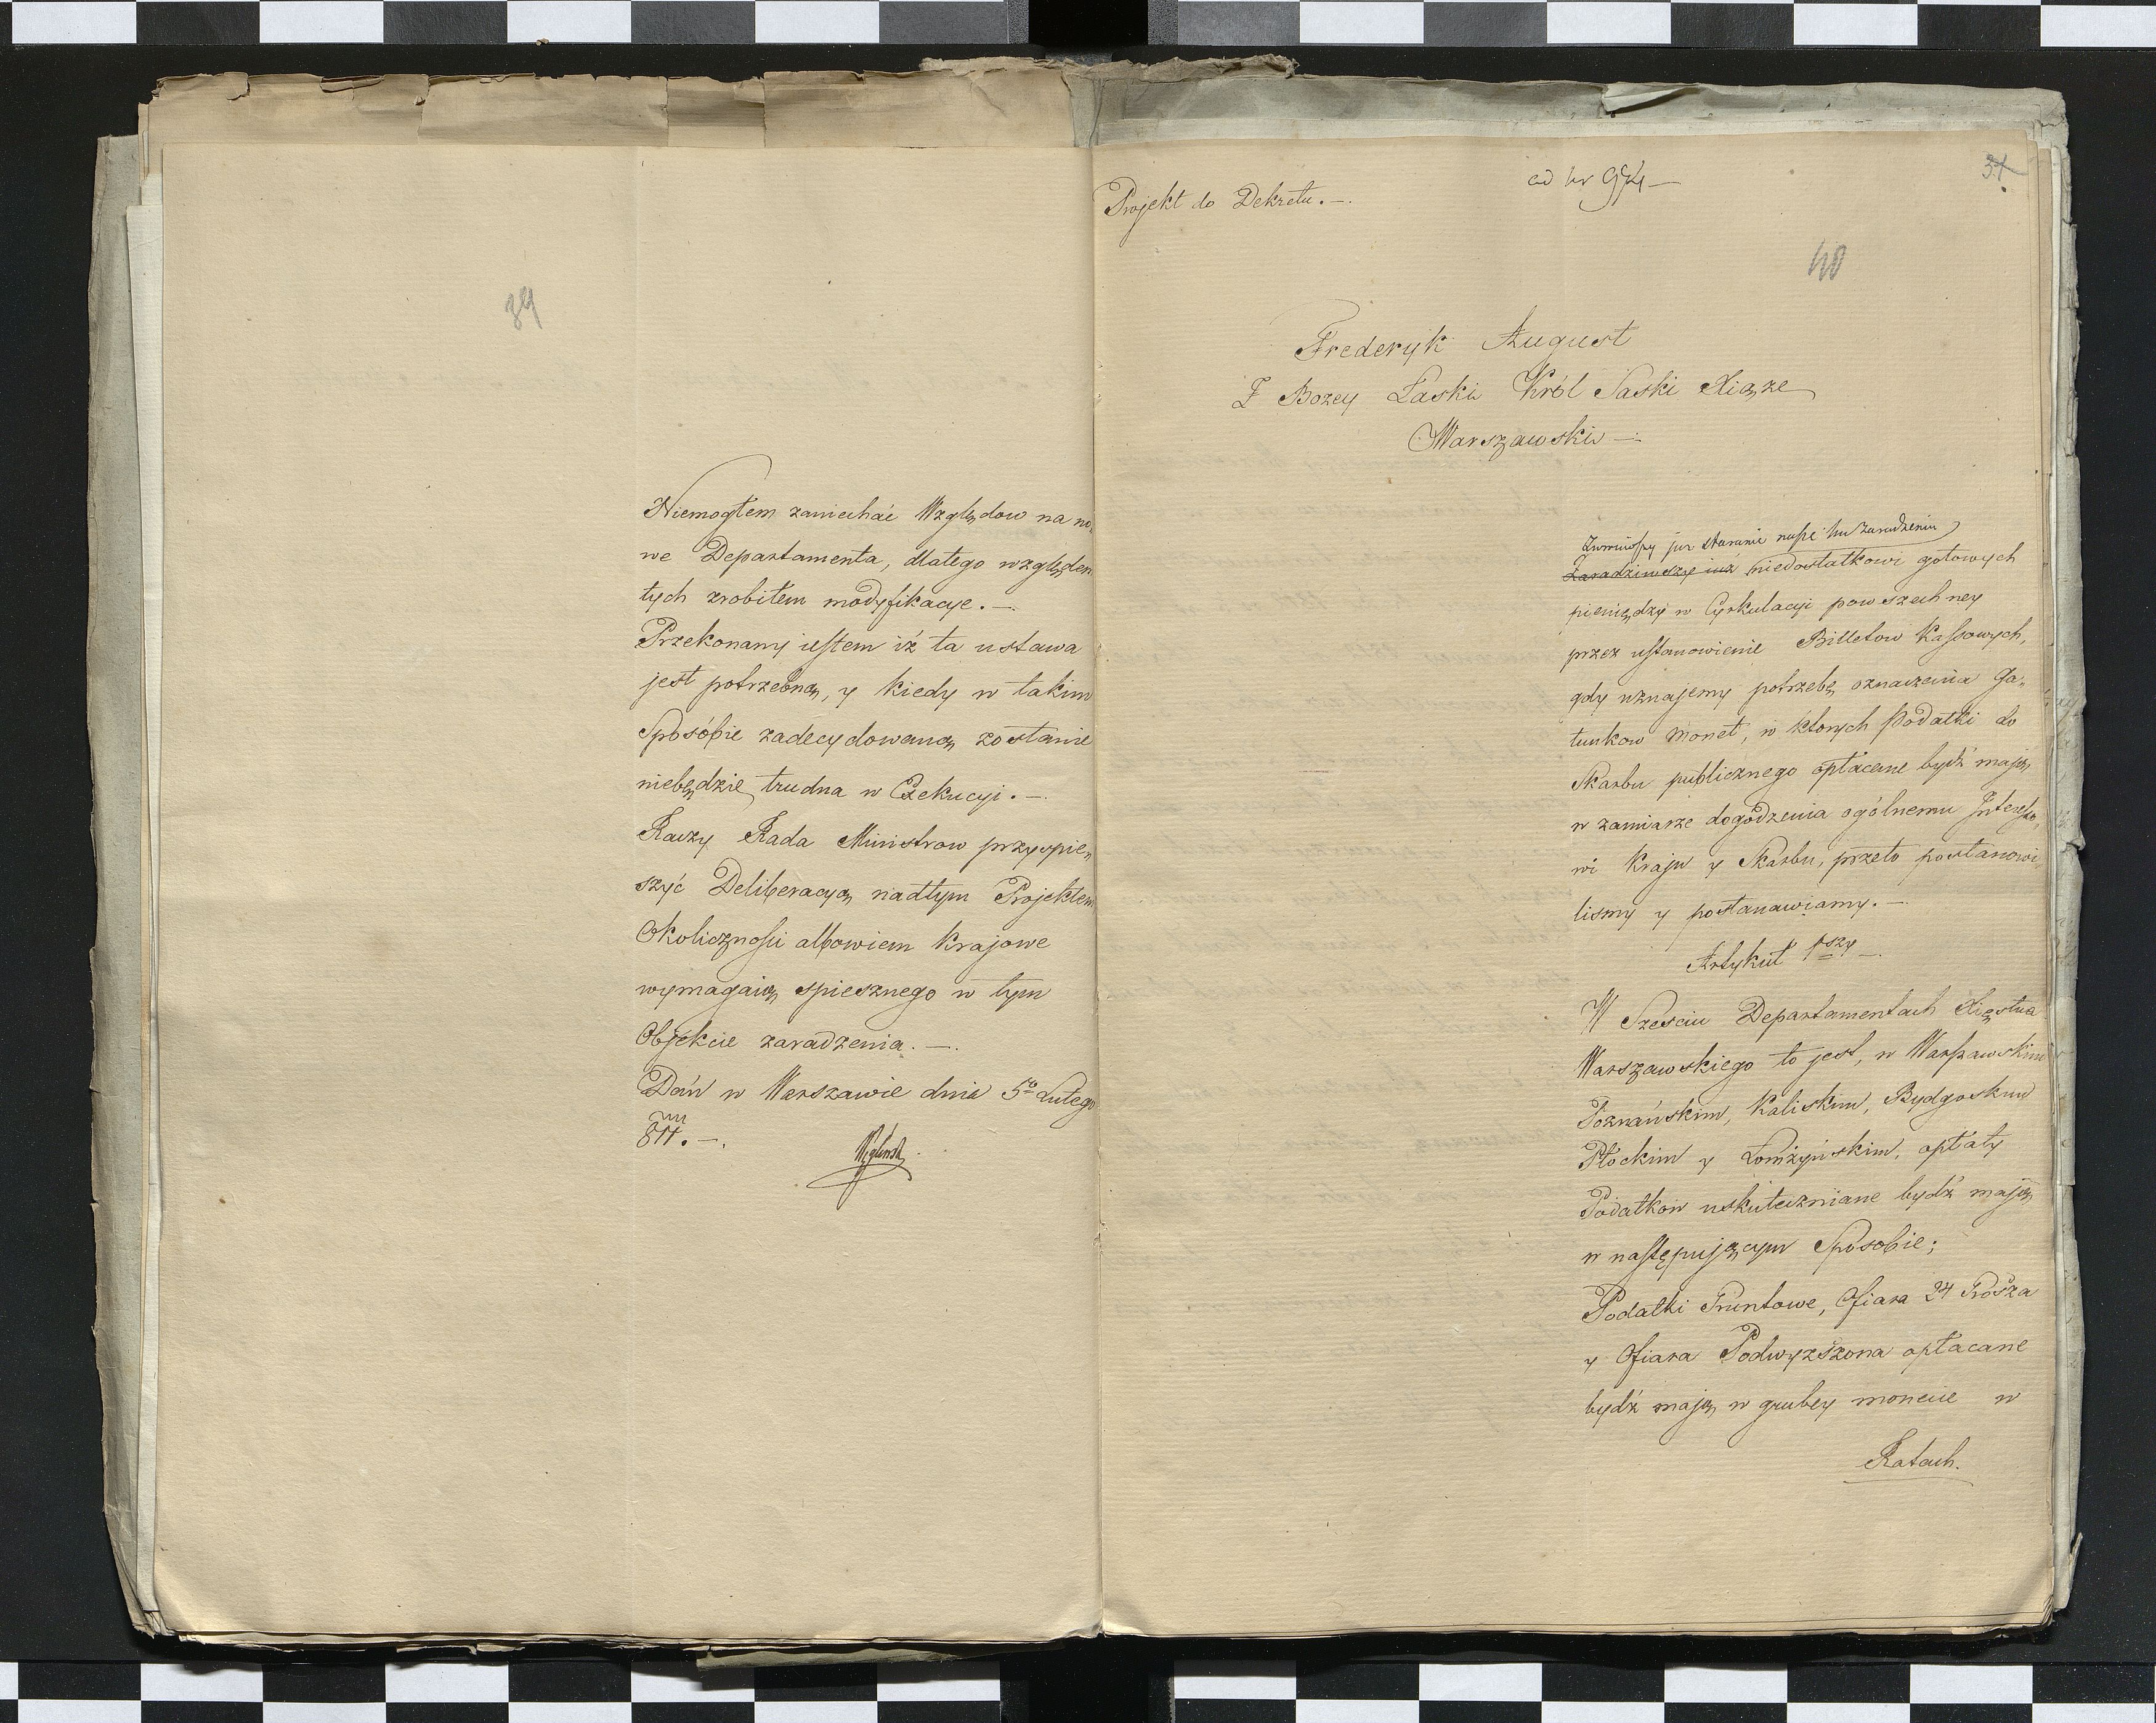 39
Niemogłem zaniechać Względow na no-
we Departamenta, dlatego względem
tych zrobiłem modyfikacye. —.
Przekonany iestem iż ta ustawa
jest potrzebną, y kiedy w takim
Sposobie zadecydowaną zostanie
niebędzie trudna w Exekucyi. —.
Raczy Rada Ministrow przyspie„
szyć Deliberacyą nadtym Projektem
Okolicznosci albowiem krajowe
wymagaią spiesznego w tym
Objekcie zaradzenia. —.
Dań w Warszawie dnia 5º Lutego
811. —.
Węgleński
Projekt do Dekretu. —.
ad Nr 974 —
31
40
Frederyk August
Z Bozey Łaski Król Saski Xiąze
Warszawski —
już staranie nasze ku zaradzeniu
Zaradziwszy iuż niedostatkowi gotowych
pieniędzy w Cyrkulacyi powszechney
przez ustanowienie Billetow Kassowych,
gdy uznajemy potrzebę oznaczenia Ga„
tunkow Monet, w ktorych Podatki do
Skarbu publicznego opłacane bydź mają
w zamiarze dogodzenia ogólnemu Interesso„
wi Kraju y Skarbu, przeto postanowi„
lismy y postanawiamy. —
Artykuł 1szy —.
W Szesciu Departamentach Xięstwa
Warszawskiego to jest, w Warszawskim
Poznańskim, Kaliskim, Bydgoskim
Płockim y Łomżyńskim, opłaty
Podatkow uskuteczniane bydź mają
w następującym Sposobie;
Podatki Gruntowe, Ofiara 24 Grosza
y Ofiara Podwyzszona opłacane
bydź mają w grubey monecie w
Ratach.